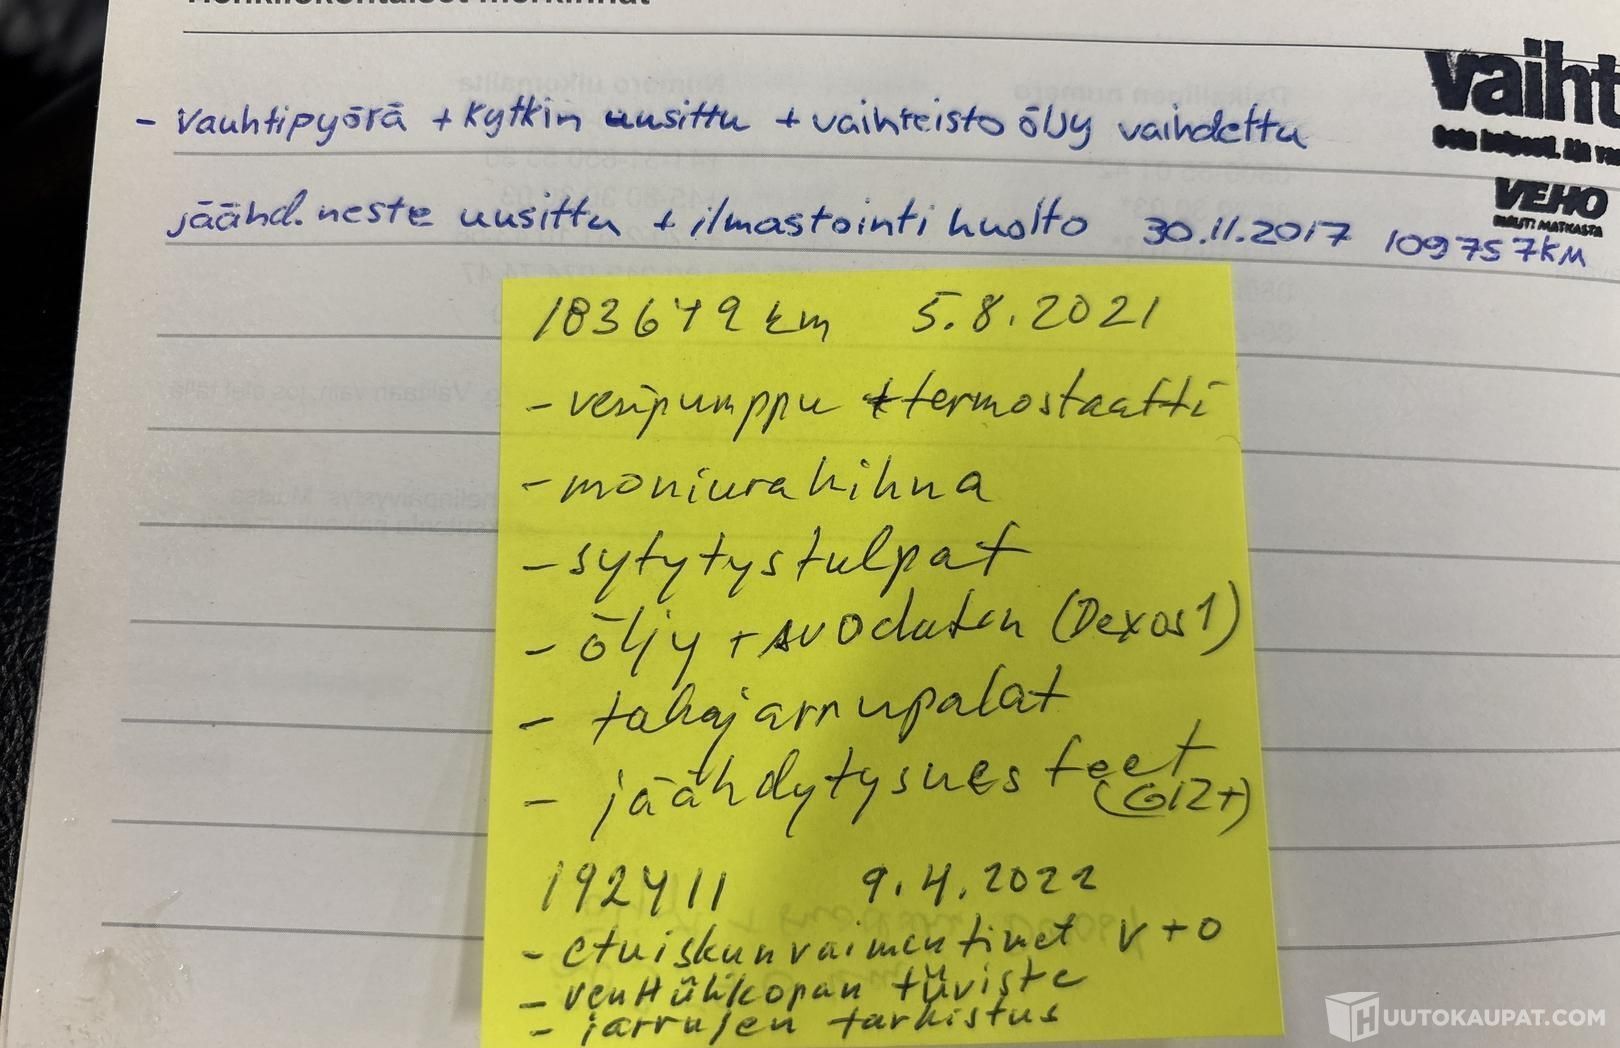 Henkilökohtaiset merkinnät
- Vauhtipyörä + kytkin uusittu + vaihteisto öljy vaihdettu
jäähd. neste uusittu + ilmastointi huolto 30.11.2017 109757km
vaiht
VEHO
183679 km 5.8.2021
- vesipumppu + termostaatti
- moniurahihna
- sytytystulpat
- öljy + suodatin (Dexos1)
- takajarrupalat
- jäähdytysnesteet
(G12+)
192411 9.4.2022
- etuiskunvaimentimet v+o
- venttiilikopan tiiviste
- jarrujen tarkistus
HUUTOKAUPAT.COM